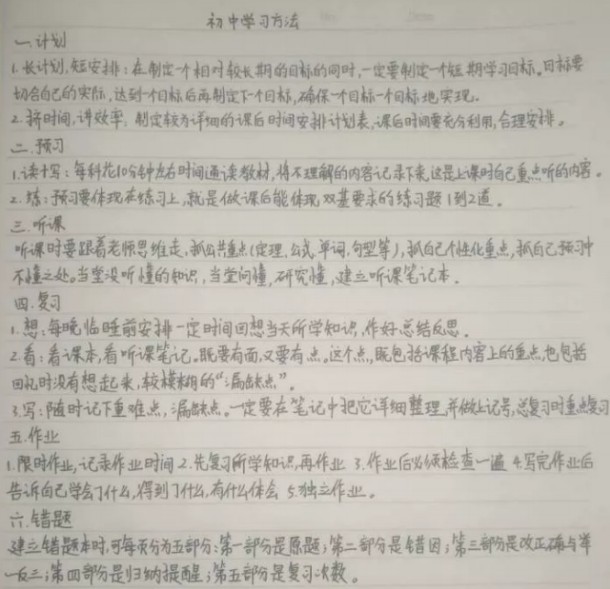 初中学习方法
一.计划
1.长计划,短安排:在制定一个相对较长期的目标的同时,一定要制定一个短期学习目标。目标要
切合自己的实际,达到一个目标后再制定下一个目标,确保一个目标一个目标地实现。
2.挤时间,讲效率:制定较为详细的课后时间安排计划表,课后时间要充分利用,合理安排。
二.预习
1.读+写:每科花10分钟左右时间通读教材,将不理解的内容记录下来,这是上课时自己重点听的内容。
2.练:预习要体现在练习上,就是做课后能体现双基要求的练习题1到2道。
三.听课
听课时要跟着老师思维走,抓公共重点(定理.公式.单词.句型等),抓自己个性化重点,抓自己预习中
不懂之处。当堂没听懂的知识,当堂问懂,研究懂,建立听课笔记本.
四.复习
1.想:每晚临睡前安排一定时间回想当天所学知识,作好总结反思.
2.看:看课本,看听课笔记,既要有面,又要有点。这个点,既包括课程内容上的重点,也包括
回忆时没有想起来,较模糊的“漏缺点”。
3.写:随时记下重难点,漏缺点。一定要在笔记中把它详细整理,并做上记号,总复习时重点复习
五.作业
1.限时作业,记录作业时间 2.先复习所学知识,再作业 3.作业后必须检查一遍 4.写完作业后
告诉自己学会了什么,得到了什么,有什么体会 5.独立作业。
六.错题
建立错题本时,可每页分为五部分:第一部分是原题;第二部分是错因;第三部分是改正确与举
一反三;第四部分是归纳提醒;第五部分是复习次数。